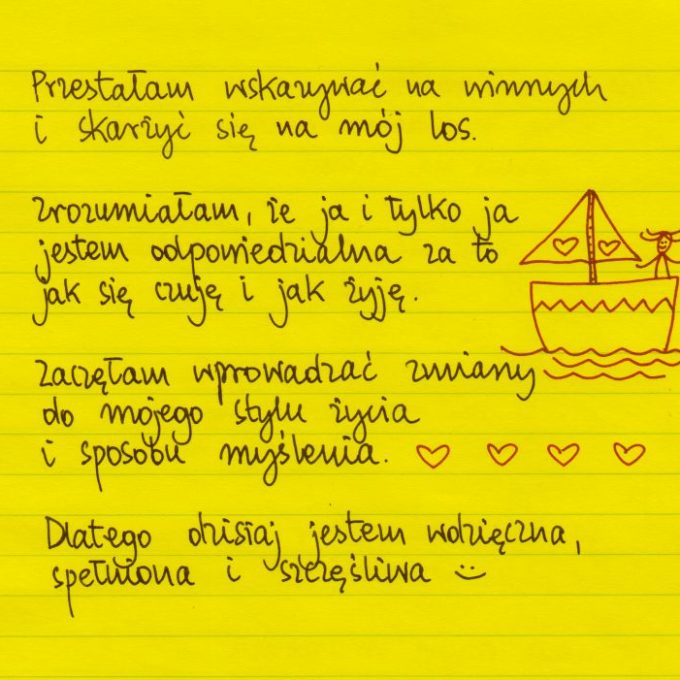 Przestałam wskazywać na winnych
i skarżyć się na mój los.
Zrozumiałam, że ja i tylko ja
jestem odpowiedzialna za to
jak się czuję i jak żyję.
Zaczęłam wprowadzać zmiany
do mojego stylu życia
i sposobu myślenia.
Dlatego dzisiaj jestem wdzięczna,
spełniona i szczęśliwa :)